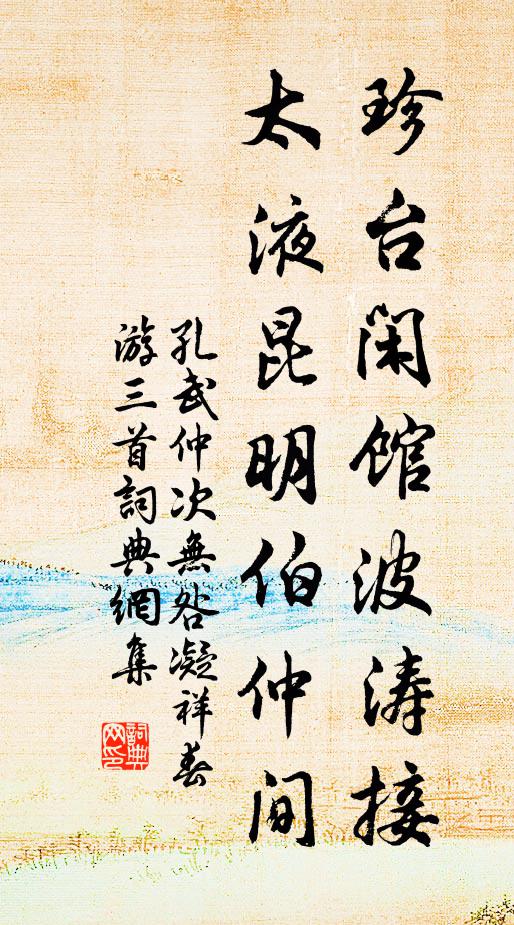 珍台闲馆波涛接
太液昆明伯仲间
孔武仲次無咎凝祥春
游三首詞典網集
詞典
网印